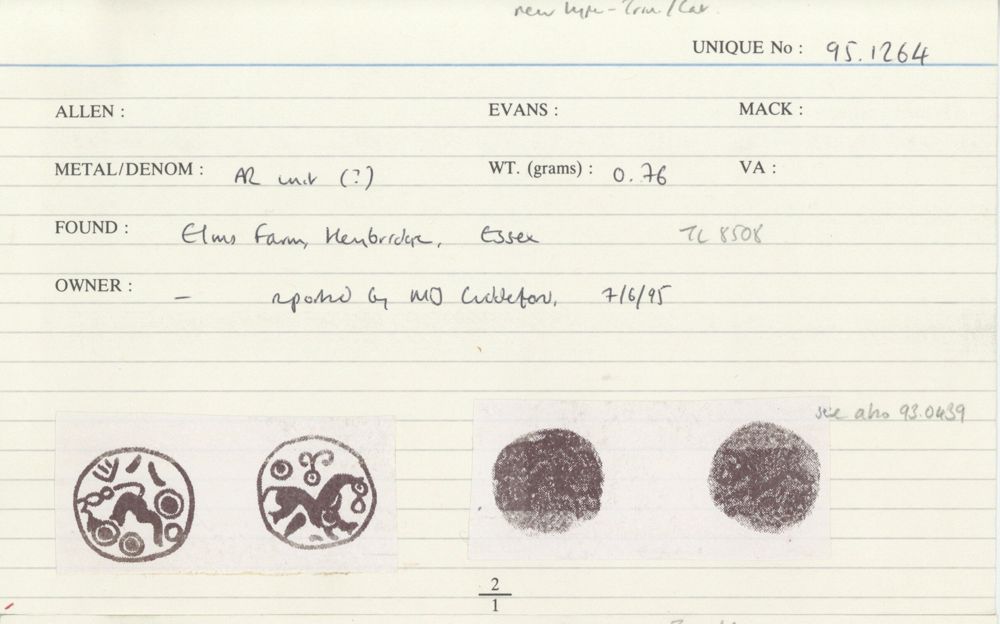 new type - Trin/Cat.
UNIQUE No : 95.1264
ALLEN : EVANS : MACK :
METAL/DENOM : AR unit (?) WT. (grams) : 0.76 VA :
FOUND : Elms Farm, Heybridge, Essex TL 8508
OWNER : — reported by MJ 7/6/95
see also 93.0439
2
1